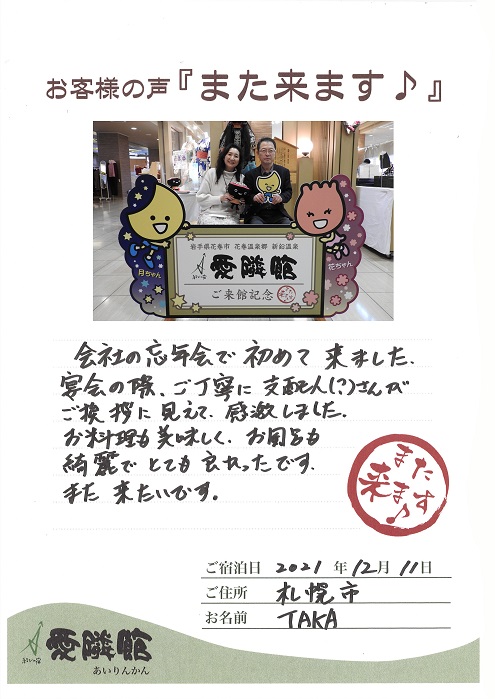 お客様の声『また来ます♪』
月ちゃん
花ちゃん
岩手県花巻市 花巻温泉郷 新鉛温泉
結びの宿 愛隣館
ご来館記念
また来ます♪
会社の忘年会で初めて来ました。
宴会の際、ご丁寧に支配人(?)さんが
ご挨拶に見えて、感激しました。
お料理も美味しく、お風呂も
綺麗でとても良かったです。
また来たいです。
また来ます♪
ご宿泊日 2021年12月11日
ご住所 札幌市
お名前 TAKA
結びの宿 愛隣館
あいりんかん